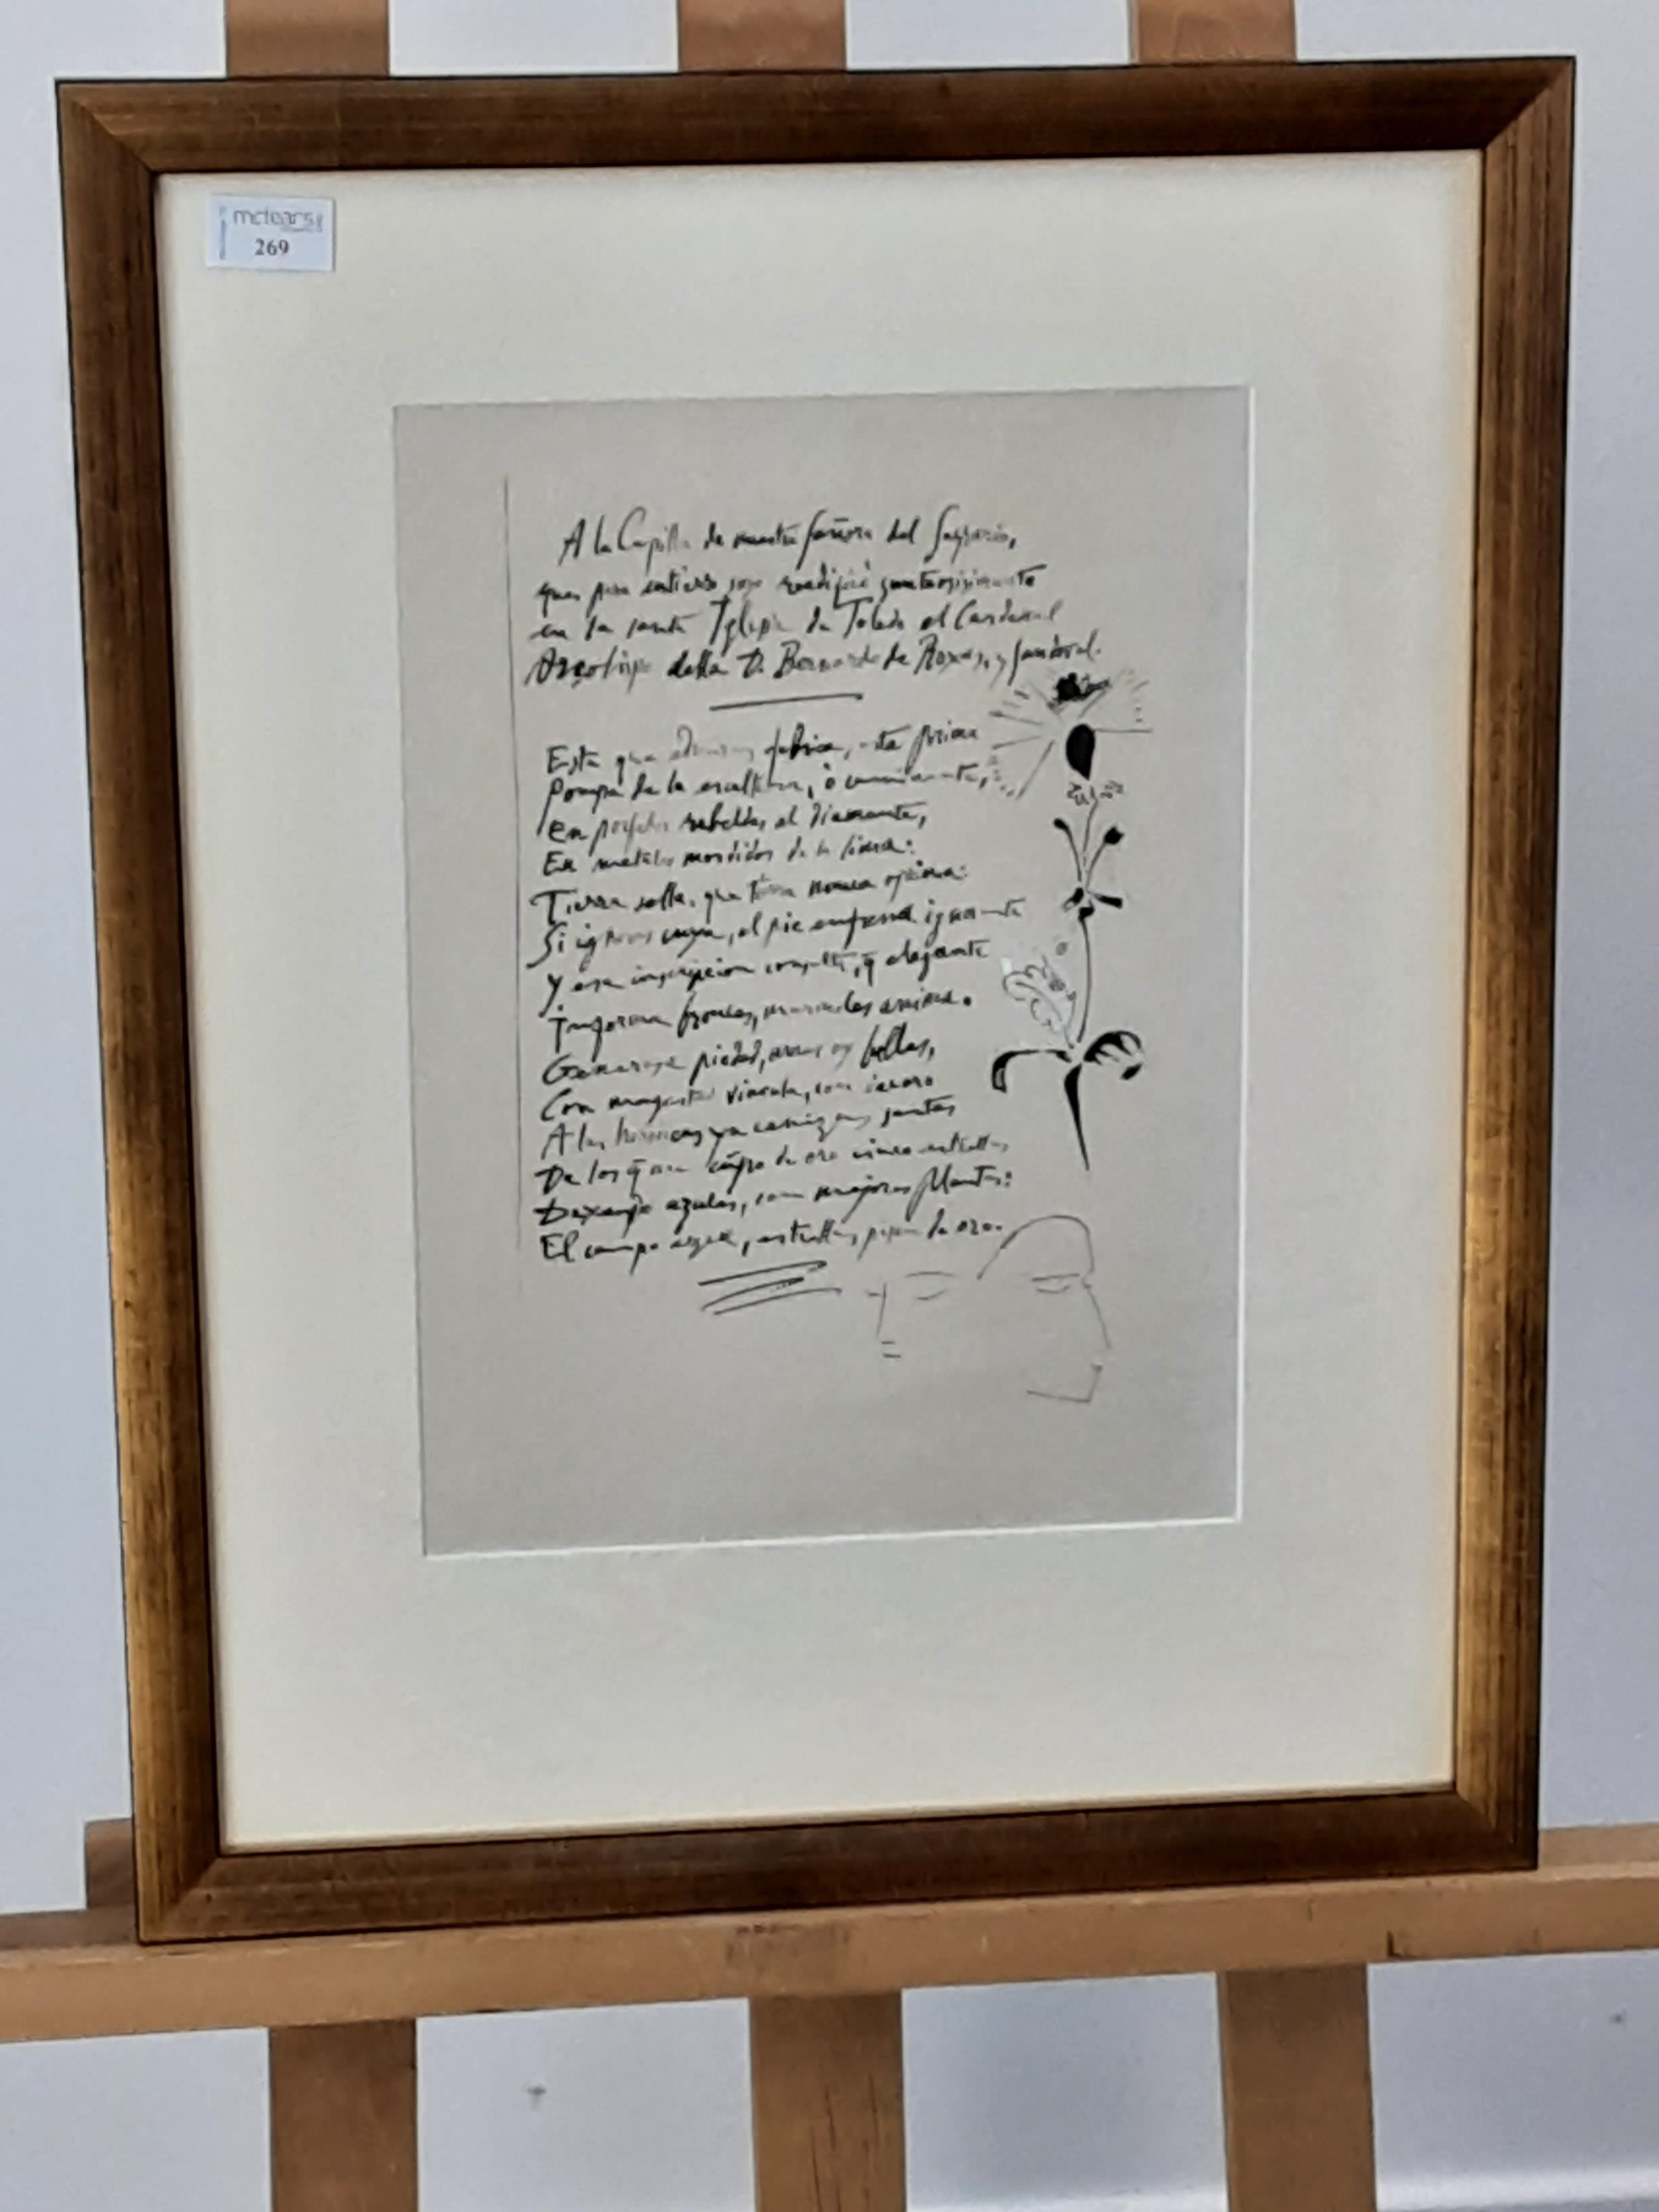 mctears
269
A la Capilla de nuestra Señora del Sagrario,
que para entierro suyo reedificó
en la santa Iglesia de Toledo el Cardenal
Arçobispo della D. Bernardo de Roxas, y Sandoval.
Esta que admiras fabrica, esta prima
Pompa de la escultura, ò caminante,
En porfidos rebeldes al diamante,
En metales mordidos de la lima:
Tierra sella, que tierra nunca oprima:
Si ignoras cuya, el pie enfrena ignorante
Y esa inscripcion consulta, q̃ elegante
Informa bronces, marmoles anima.
Generosa piedad, urnas oy bellas,
Con magestad vincula, con decoro
A las heroicas ya cenizas santas
De los q̃ a un campo de oro cinco estrellas
Dexando azules, con mejores Plantas:
El campo azul, estrellas pisan de oro.